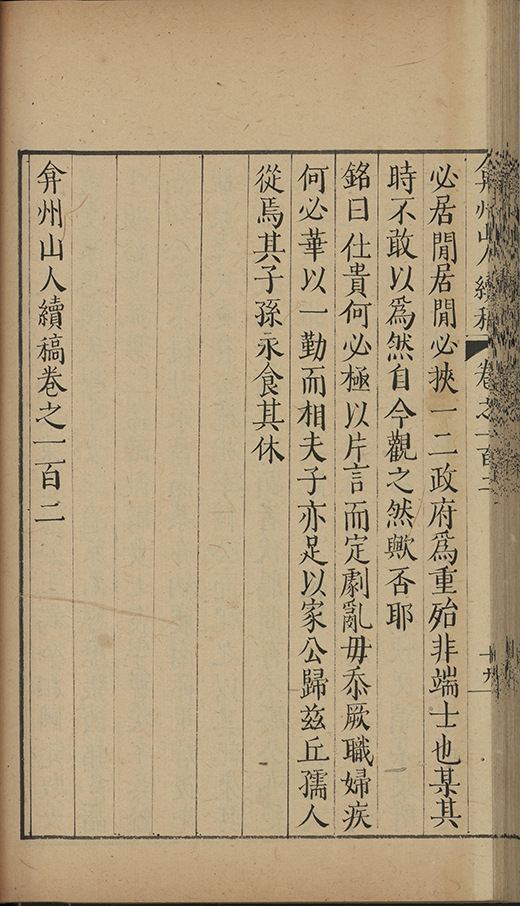 弇州山人續稿 卷之一百二 十九
必居閒居閒必挾一二政府爲重殆非端士也某其
時不敢以爲然自今觀之然歟否耶
銘曰仕貴何必極以片言而定劇亂毋忝厥職婦疾
何必華以一勤而相夫子亦足以家公歸兹丘孺人
從焉其子孫永食其休
弇州山人續稿卷之一百二